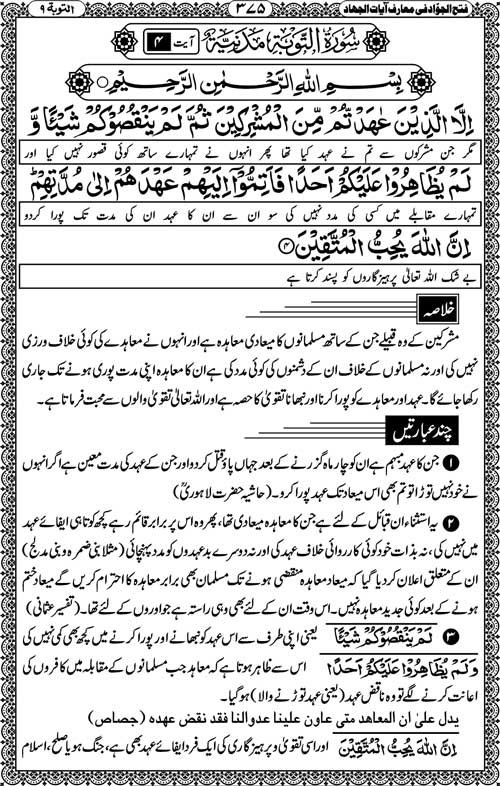 فتح الجوّاد فی معارف آیات الجهاد ۳۷۵ التوبة ۹
سُوْرَۃُ التَّوْبَۃِ مَدَنِیَّۃٌ آیت ۴
بِسْمِ اللهِ الرَّحْمٰنِ الرَّحِیْمِ
اِلَّا الَّذِیْنَ عٰهَدْتُّمْ مِّنَ الْمُشْرِکِیْنَ ثُمَّ لَمْ یَنْقُصُوْکُمْ شَیْئًا وَّ
مگر جن مشرکوں سے تم نے عہد کیا تھا پھر انہوں نے تمہارے ساتھ کوئی قصور نہیں کیا اور
لَمْ یُظَاهِرُوْا عَلَیْکُمْ اَحَدًا فَاَتِمُّوْۤا اِلَیْهِمْ عَهْدَهُمْ اِلٰی مُدَّتِهِمْ ؕ
تمہارے مقابلے میں کسی کی مدد نہیں کی سو ان سے ان کا عہد ان کی مدت تک پورا کردو
اِنَّ اللهَ یُحِبُّ الْمُتَّقِیْنَ ۴
بے شک اللہ تعالی پرہیزگاروں کو پسند کرتا ہے
خلاصہ
مشرکین کے وہ قبیلے جن کے ساتھ مسلمانوں کا میعادی معاہدہ ہے اور انہوں نے معاہدے کی کوئی خلاف ورزی
نہیں کی اور نہ مسلمانوں کے خلاف ان کے دشمنوں کی کوئی مدد کی ہے ان کا معاہدہ اپنی مدت پوری ہونے تک جاری
رکھا جائے گا۔ عہد اور معاہدے کو پورا کرنا اور نبھانا تقویٰ کا حصہ ہے اور اللہ تعالیٰ تقویٰ والوں سے محبت فرماتا ہے۔
چند عبارتیں
۱ جن کا عہد مبہم ہے ان کو چار ماہ گزرنے کے بعد جہاں پاؤ قتل کردو اور جن کے عہد کی مدت معین ہے اگر انہوں
نے خود نہیں توڑا تو تم بھی اس میعاد تک عہد پورا کرو۔ (حاشیہ حضرت لاہوریؒ)
۲ یہ استثناء ان قبائل کے لئے ہے جن کا معاہدہ میعادی تھا، پھر وہ اس پر برابر قائم رہے کچھ کوتاہی ایفائے عہد
میں نہیں کی، نہ بذات خود کوئی کارروائی خلاف عہد کی اور نہ دوسرے بدعہدوں کو مدد پہنچائی (مثلاً بنی ضمرہ و بنی مدلج)
ان کے متعلق اعلان کردیا گیا کہ میعاد معاہدہ منقضی ہونے تک مسلمان بھی برابر معاہدہ کا احترام کریں گے میعاد ختم
ہونے کے بعد کوئی جدید معاہدہ نہیں۔ اس وقت ان کے لئے بھی وہی راستہ ہے جو اوروں کے لئے تھا۔ (تفسیر عثمانی)
۳ لَمْ یَنْقُصُوْکُمْ شَیْئًا یعنی اپنی طرف سے اس عہد کو نبھانے اور پورا کرنے میں کچھ بھی کمی نہیں کی
وَلَمْ یُظَاهِرُوْا عَلَیْکُمْ اَحَدًا اس سے ظاہر ہوتا ہے کہ معاہد جب مسلمانوں کے مقابلہ میں کافروں کی
اعانت کرنے لگے تو وہ ناقض عہد (یعنی عہد توڑنے والا) ہوگیا۔
یدل علیٰ ان المعاهد متی عاون علینا عدوالنا فقد نقض عهده (جصاص)
اِنَّ اللهَ یُحِبُّ الْمُتَّقِیْنَ اور اسی تقویٰ و پرہیزگاری کی ایک فرد ایفائے عہد بھی ہے، جنگ ہو یا صلح، اسلام